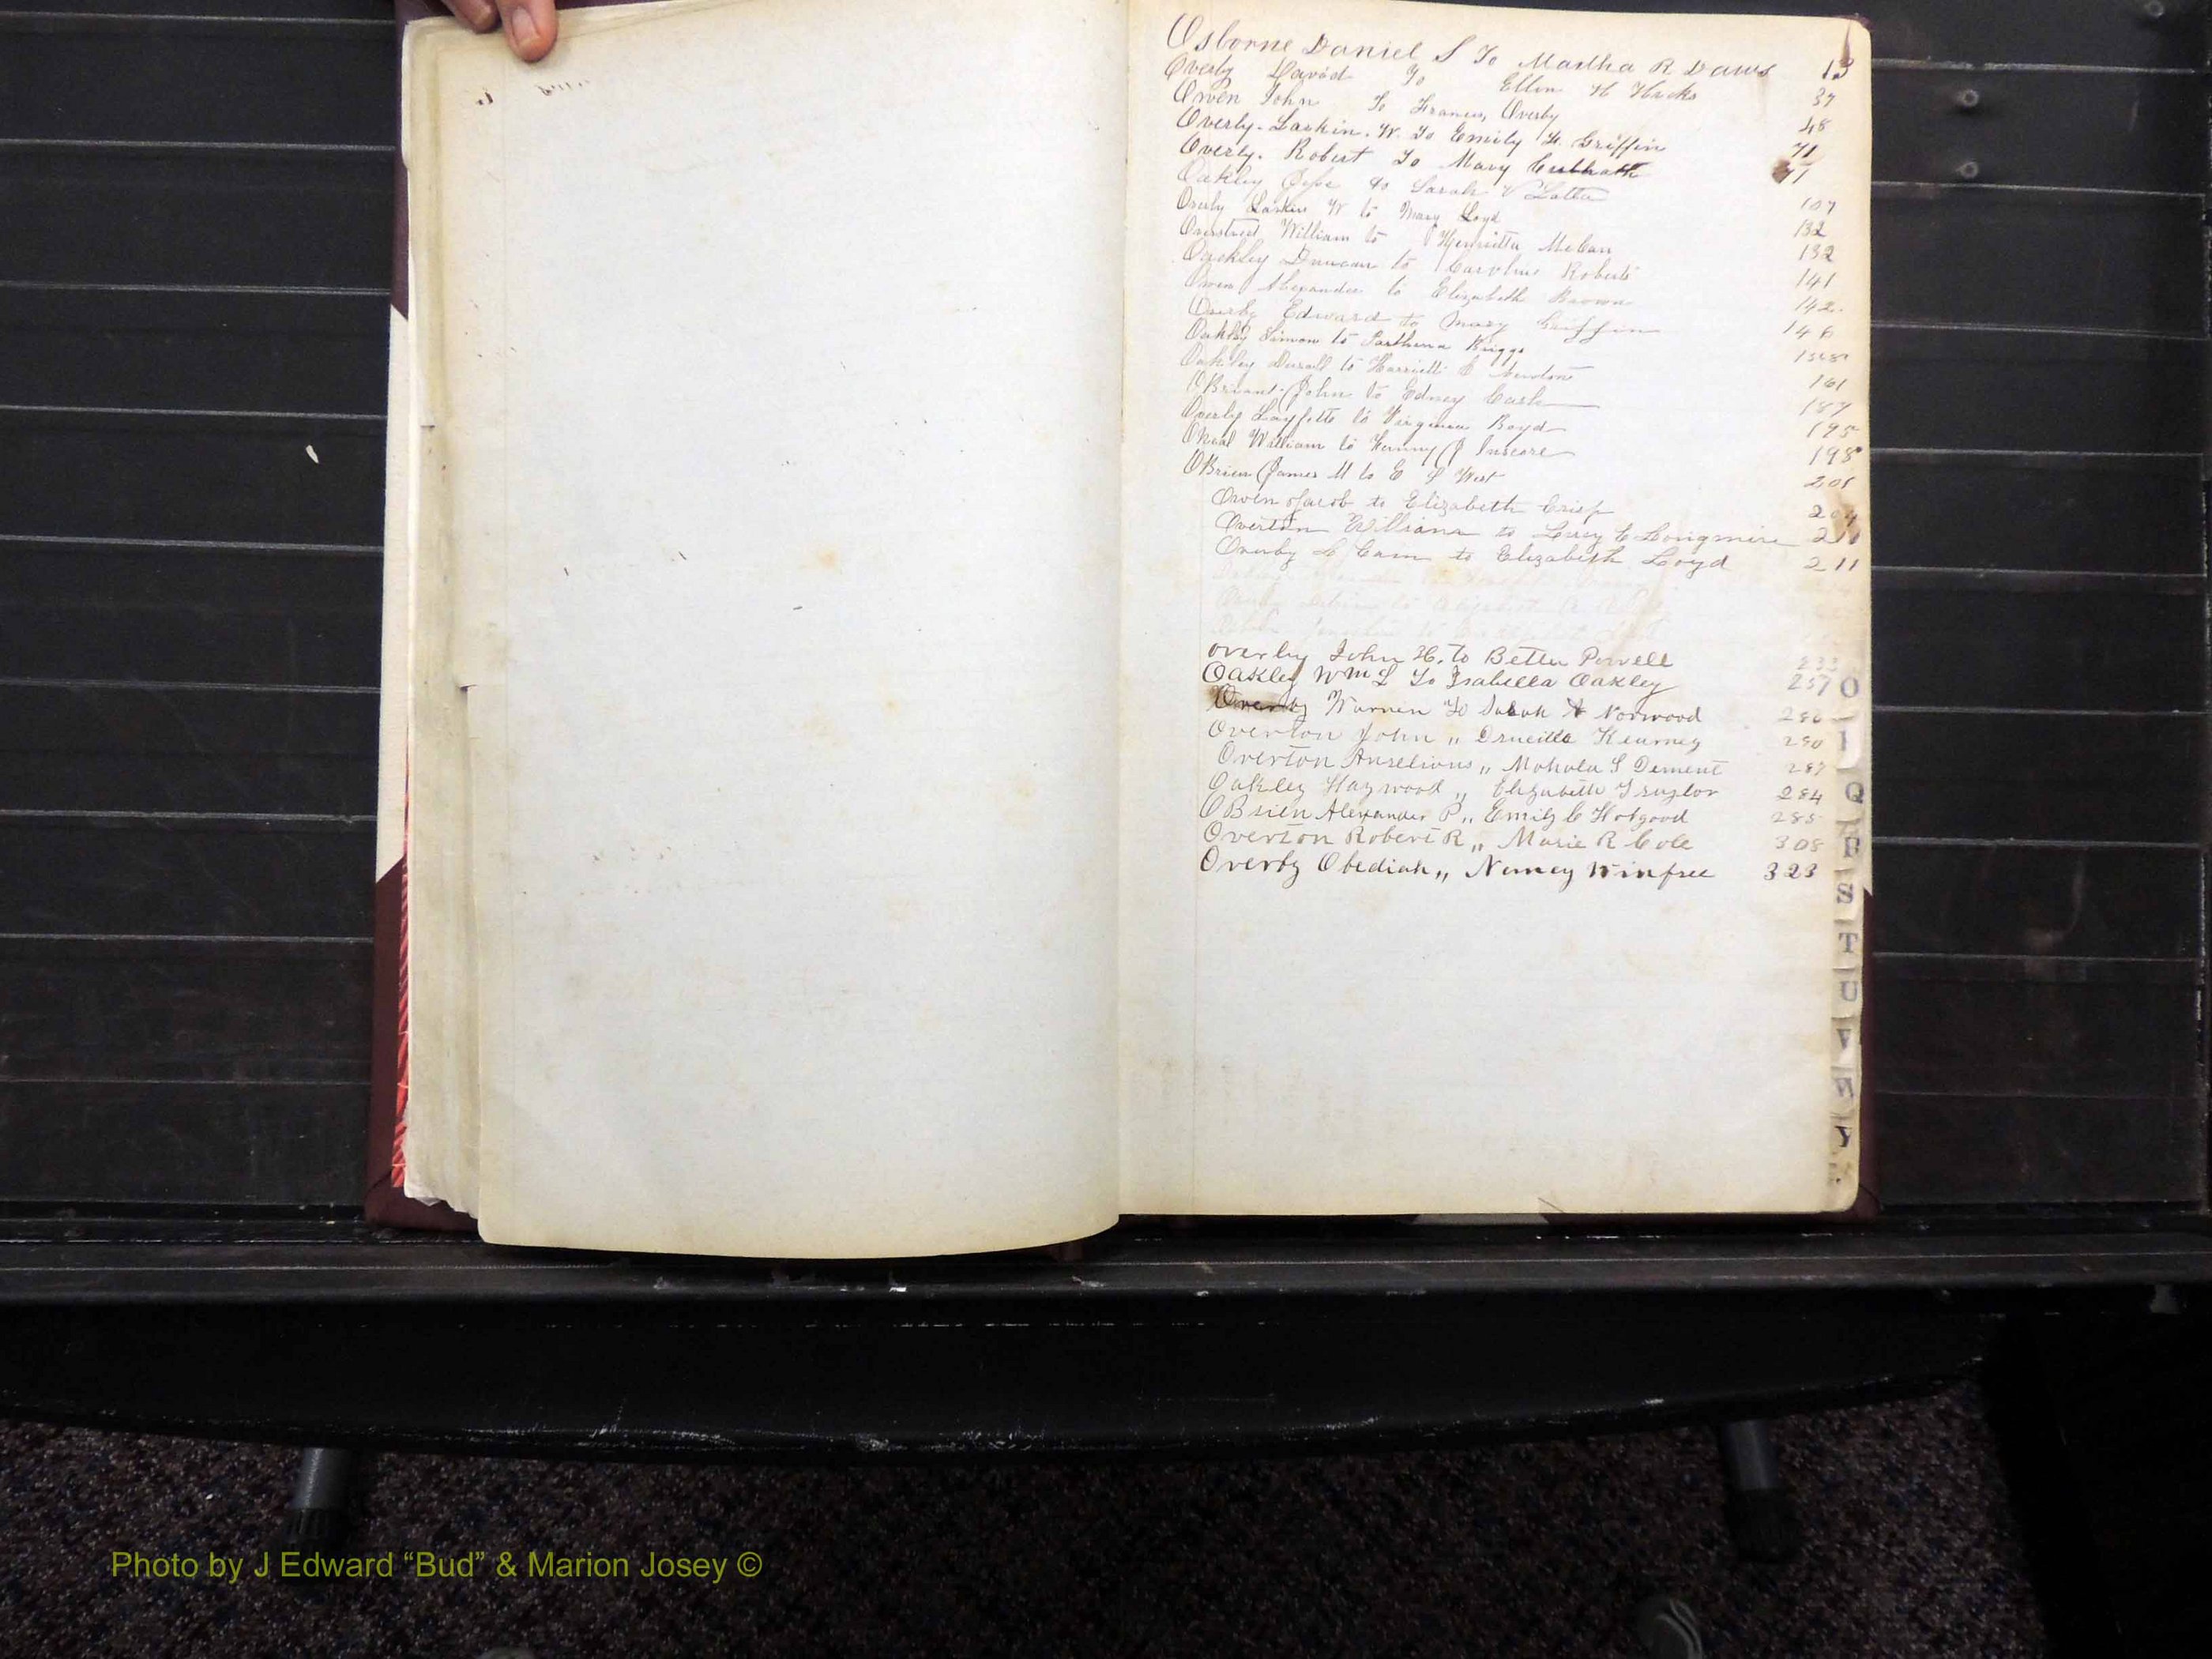 Osborne Daniel S To Martha R Daws 13
Overby David To Ellen H Hicks 37
Owen John To Frances, Overby 48
Overby. Larkin. W. To Emily F. Griffin 71
Overby. Robert To Mary 71
Oakley to Sarah V Latta 107
Overby Larkin W to Mary Loyd 132
Overstreet William to Henrietta McCan 132
Oackley Duncan to Caroline Roberts 141
Owen Alexander to Elizabeth Brown 142.
Overby Edward to Mary Griffin 146
Oakley Simon to Parthena Briggs 158
Oakley to Harriett E 161
OBriant John to Edney Cash 187
Overby Layfette to Virginia Boyd 195
Oneal William to J Inscore 198
OBrien James M to E S West 201
Owen Jacob to Elizabeth Crisp 204
Overton William to Lucy E Longmire
Overby L Cam to Elizabeth Loyd 211
Overby John H. to Bettie Powell 233
Oakley Wm L To Isabella Oakley 257
Overby Warren To Sarah A Norwood
Overton John „ Drucilla Kearney
Overton „ Mahala S Dement
Oakley Haywood „ Elizabeth Traylor 284
OBrien Alexander P „ Emily C Hobgood 285
Overton Robert R „ Marie R Cole 308
Overby Obediah „ Nancy Winfree 323
O
Q
R
S
T
U
V
W
Y
Photo by J Edward “Bud” & Marion Josey ©